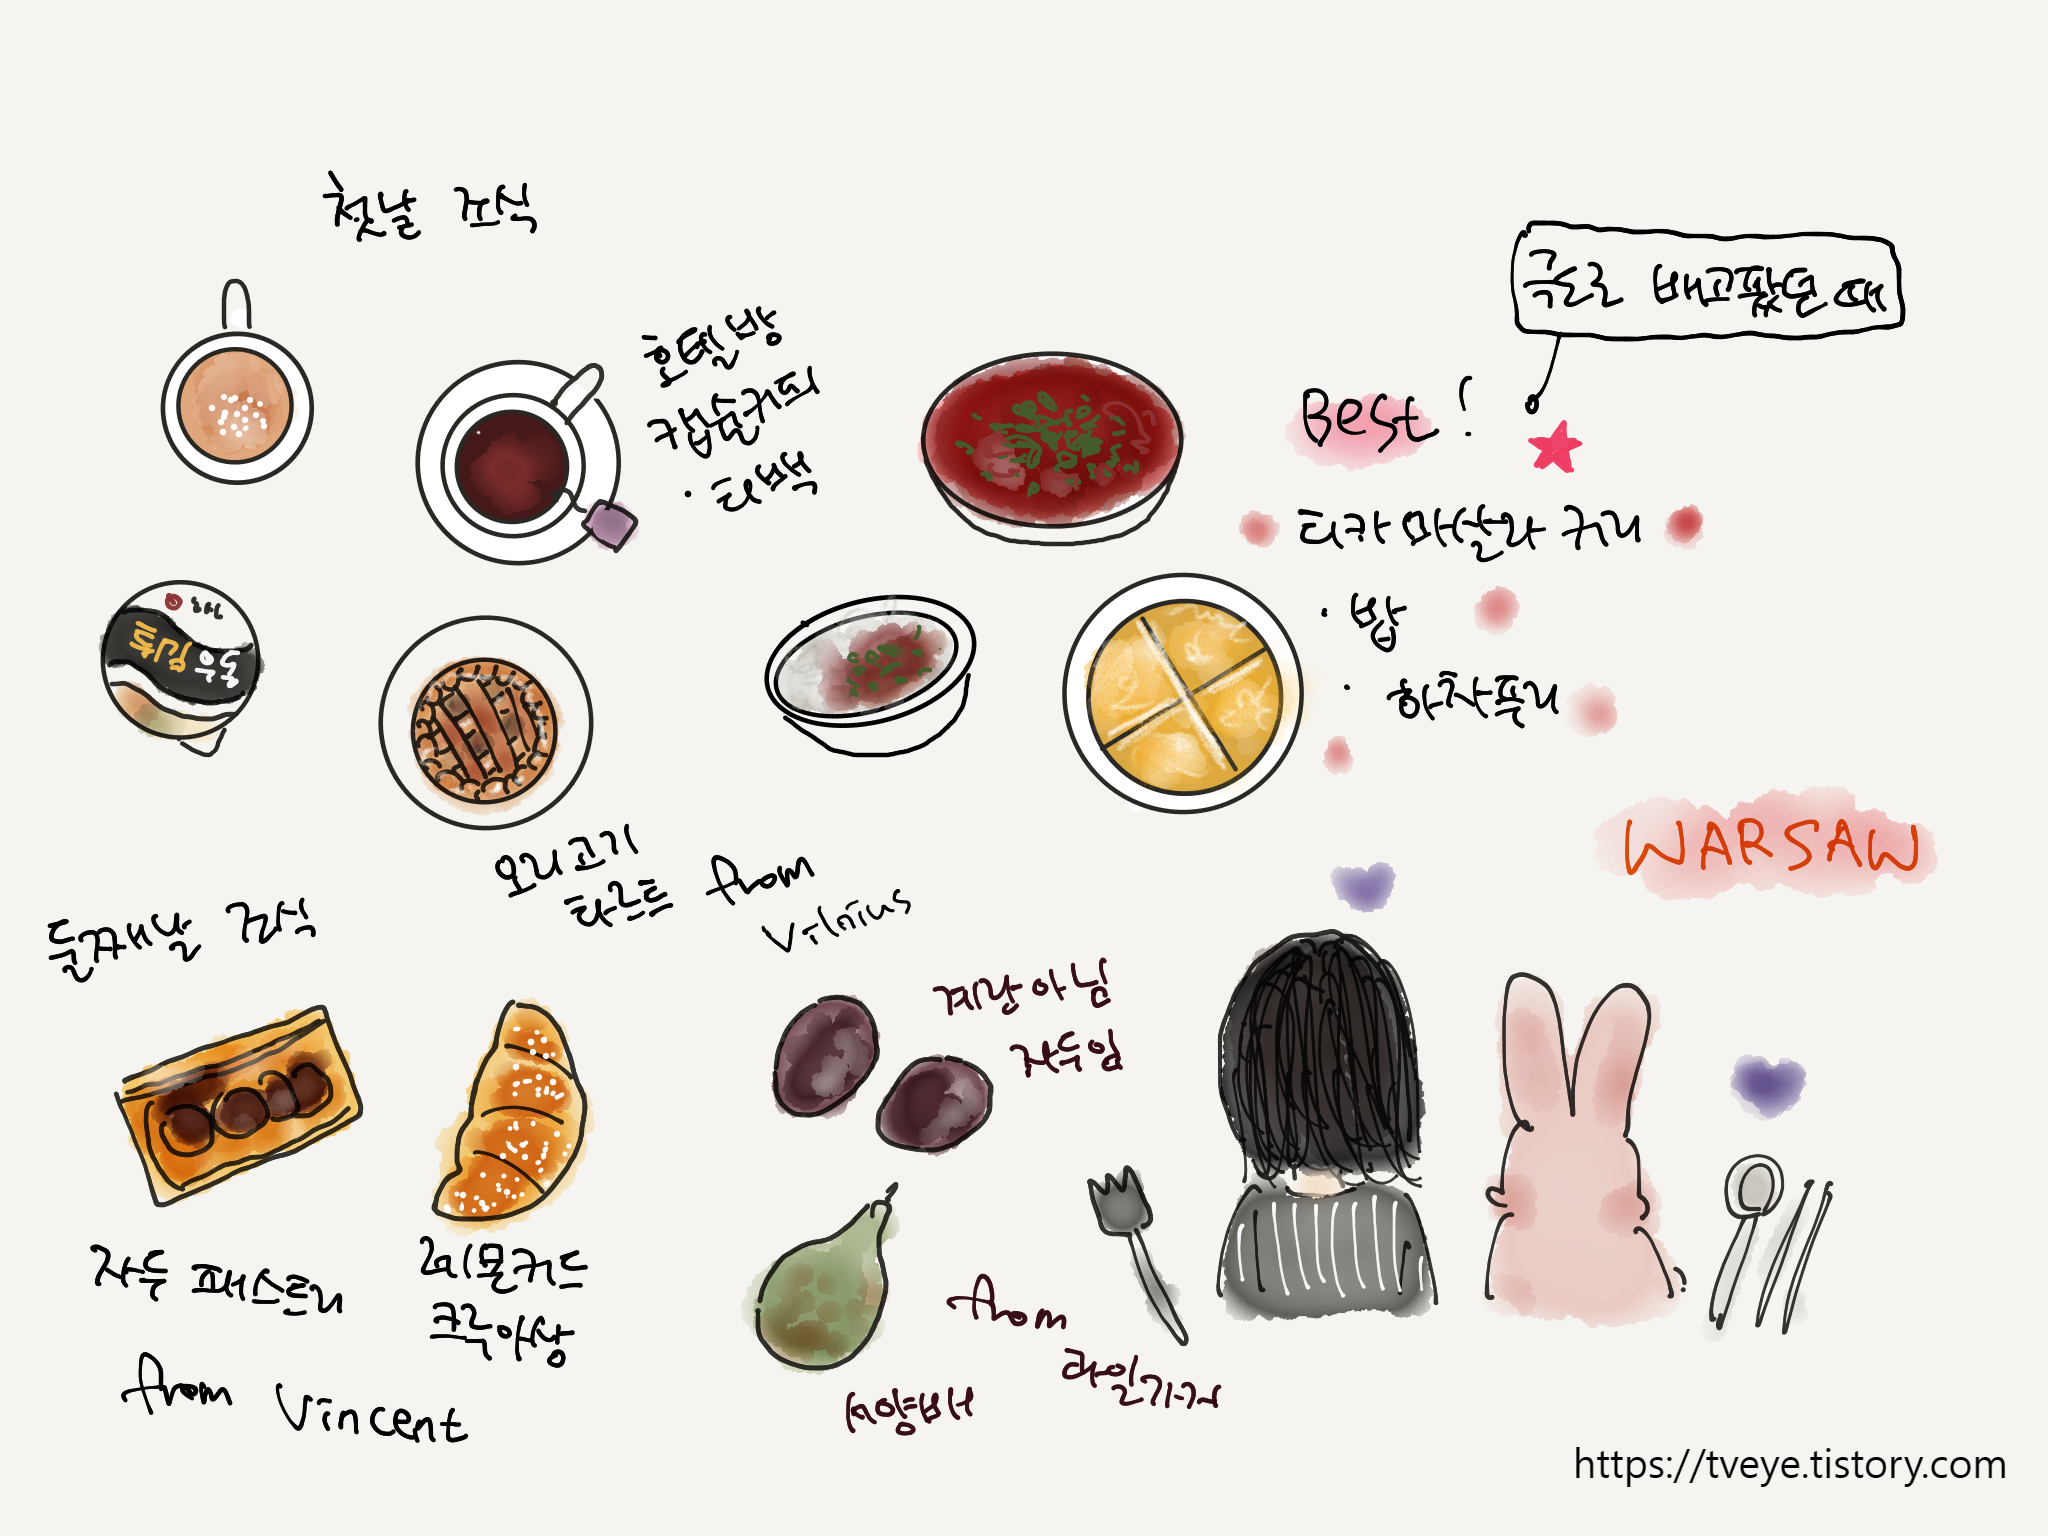 첫날 조식
호텔방
캡슐커피
· 티백
극도로 배고팠던 때
Best!
티카 마살라 커리
· 밥
· 하차푸리
오리고기
타르트 from
Vilnius
WARSAW
둘째날 조식
자두 패스트리
레몬커드
크루아상
from Vincent
계란아님
자두임
서양배
from
과일가게
https://tveye.tistory.com